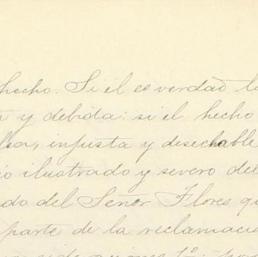 hecho. Si él es verdad la
y debida: si el hecho
falsa, injusta y desechable
io ilustrado y severo del
do del Señor Flores qu
parte de la reclamaci